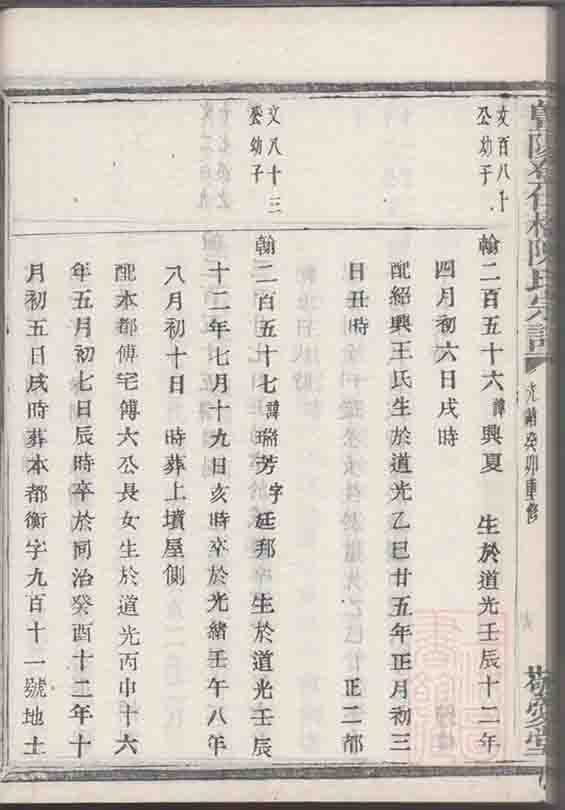 陳氏宗譜
光緒癸卯重修
文百八十
公幼子
翰二百五十六諱興夏 生於道光壬辰十二年
四月初六日戌時
配紹興王氏生於道光乙巳廿五年正月初三
日丑時 正二部
文八十三
公幼子
翰二百五十七諱瑞芳字廷邦 生於道光壬辰
十二年七月十九日亥時卒於光緒壬午八年
八月初十日 時葬上墳屋側
配本都傅宅傅六公長女生於道光丙申十六
年五月初七日辰時卒於同治癸酉十二年十
月初五日戌時葬本都衡字九百十一號地土